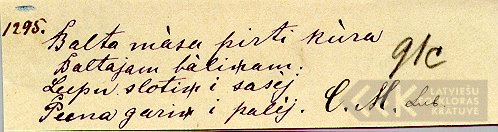 1295.
Balta māsa pirti kūra
Baltajam bāliņam:
Leepu slotiņ i sasēj
Peena gariņ i palēj.
91c
C. M. Lub
LATVIEŠU
FOLKLORAS
KRĀTUVE